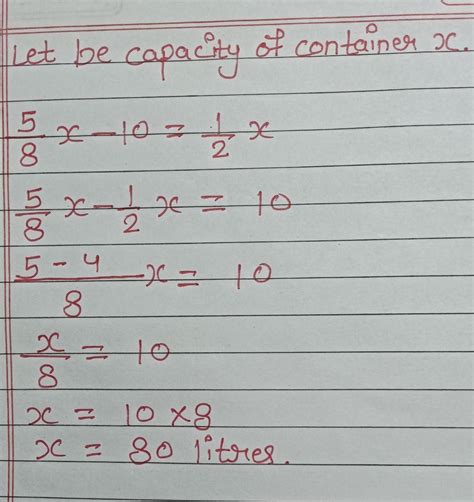 Let be capacity of container x.
5/8 x - 10 = 1/2 x
5/8 x - 1/2 x = 10
5 - 4/8 x = 10
x/8 = 10
x = 10 × 8
x = 80 litres.